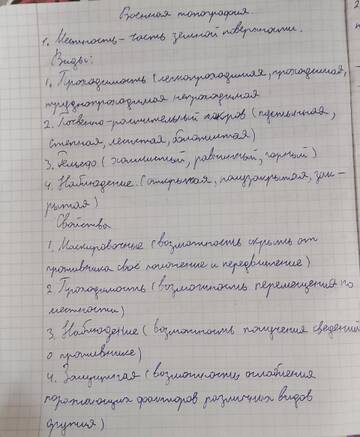 Военная топография.
1. Местность – часть земной поверхности.
Виды:
1. Проходимость (легкопроходимая, проходимая,
труднопроходимая непроходимая
2. Почвенно-растительный покров (пустынная,
степная, лесистая, болотистая)
3. Рельеф (холмистый, равнинный, горный)
4. Наблюдение (открытая, полузакрытая, зак-
рытая)
Свойства
1. Маскировочные (возможность скрыть от
противника своё положение и передвижение)
2. Проходимость (возможность перемещения по
местности)
3. Наблюдение (возможность получения сведений
о противнике)
4. Защитная (возможность ослабления
поражающих факторов различных видов
оружия)